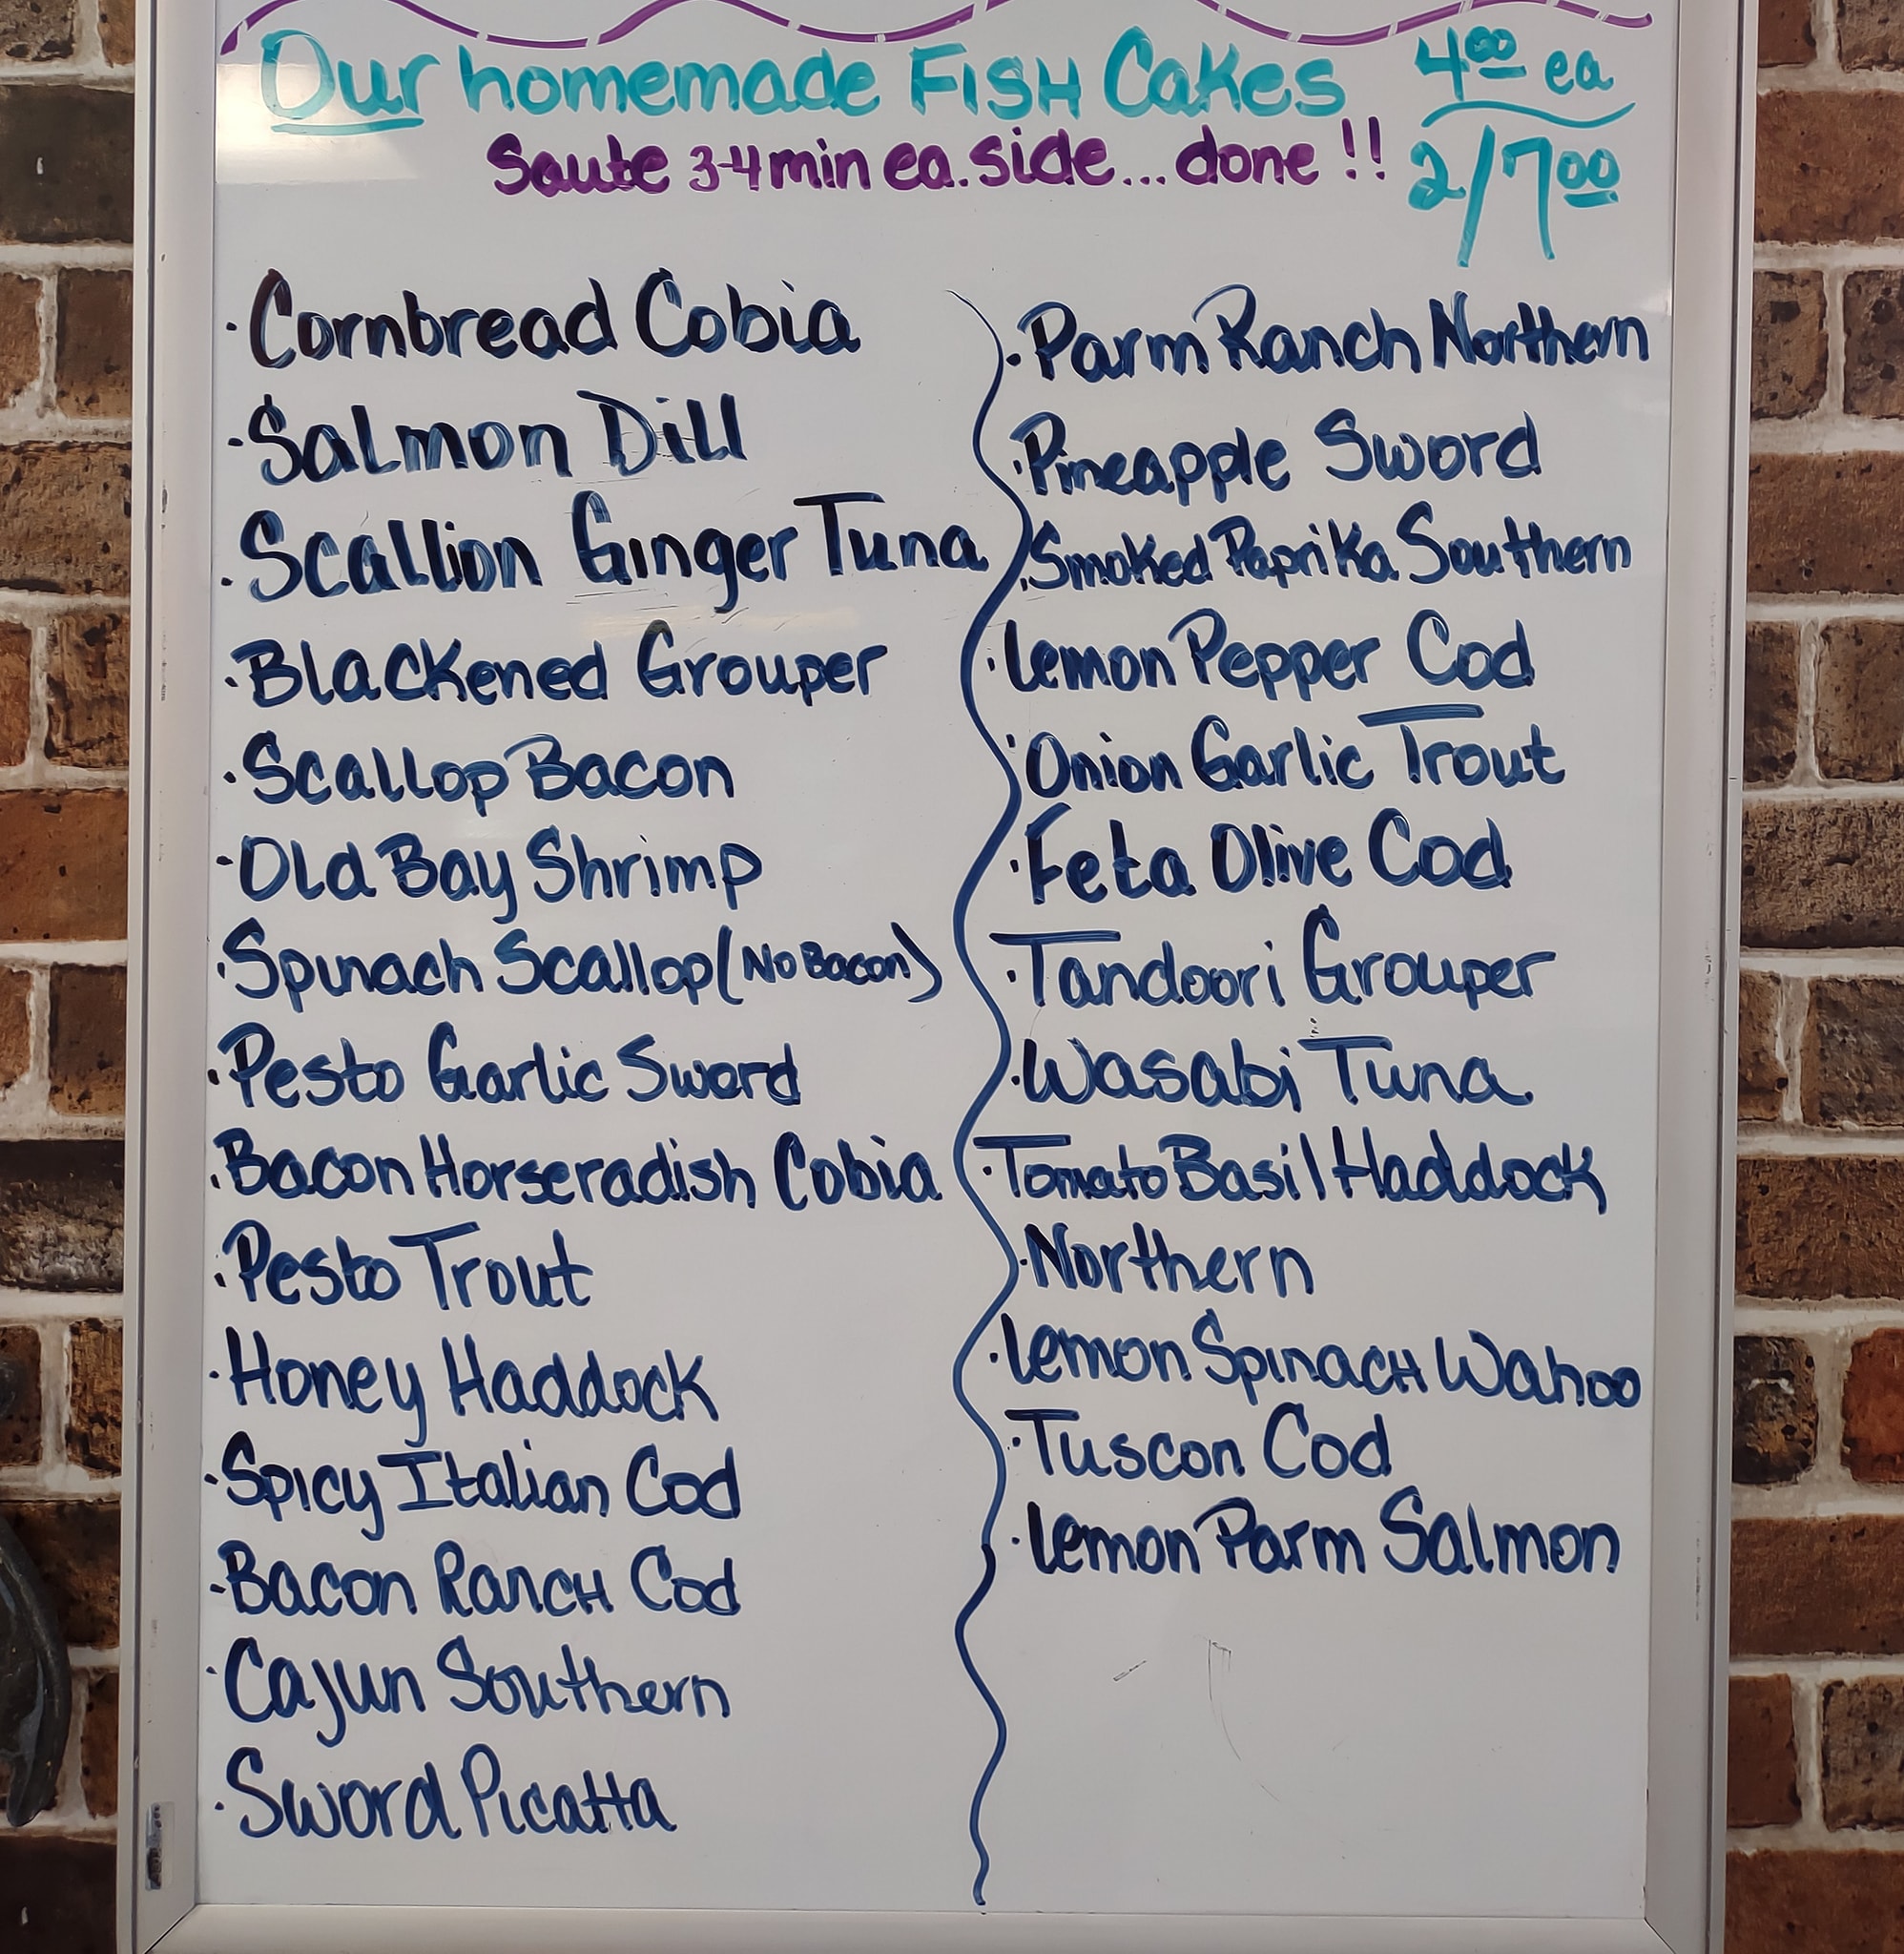 Our homemade FISH Cakes 4.00 ea
Saute 3-4 min ea. side... done !! 2/7.00
· Cornbread Cobia
· Salmon Dill
· Scallion Ginger Tuna
· Blackened Grouper
· Scallop Bacon
· Old Bay Shrimp
· Spinach Scallop (No Bacon)
· Pesto Garlic Sword
· Bacon Horseradish Cobia
· Pesto Trout
· Honey Haddock
· Spicy Italian Cod
· Bacon Ranch Cod
· Cajun Southern
· Sword Picatta
· Parm Ranch Northern
· Pineapple Sword
· Smoked Paprika Southern
· Lemon Pepper Cod
· Onion Garlic Trout
· Feta Olive Cod
· Tandoori Grouper
· Wasabi Tuna
· Tomato Basil Haddock
· Northern
· Lemon Spinach Wahoo
· Tuscon Cod
· Lemon Parm Salmon